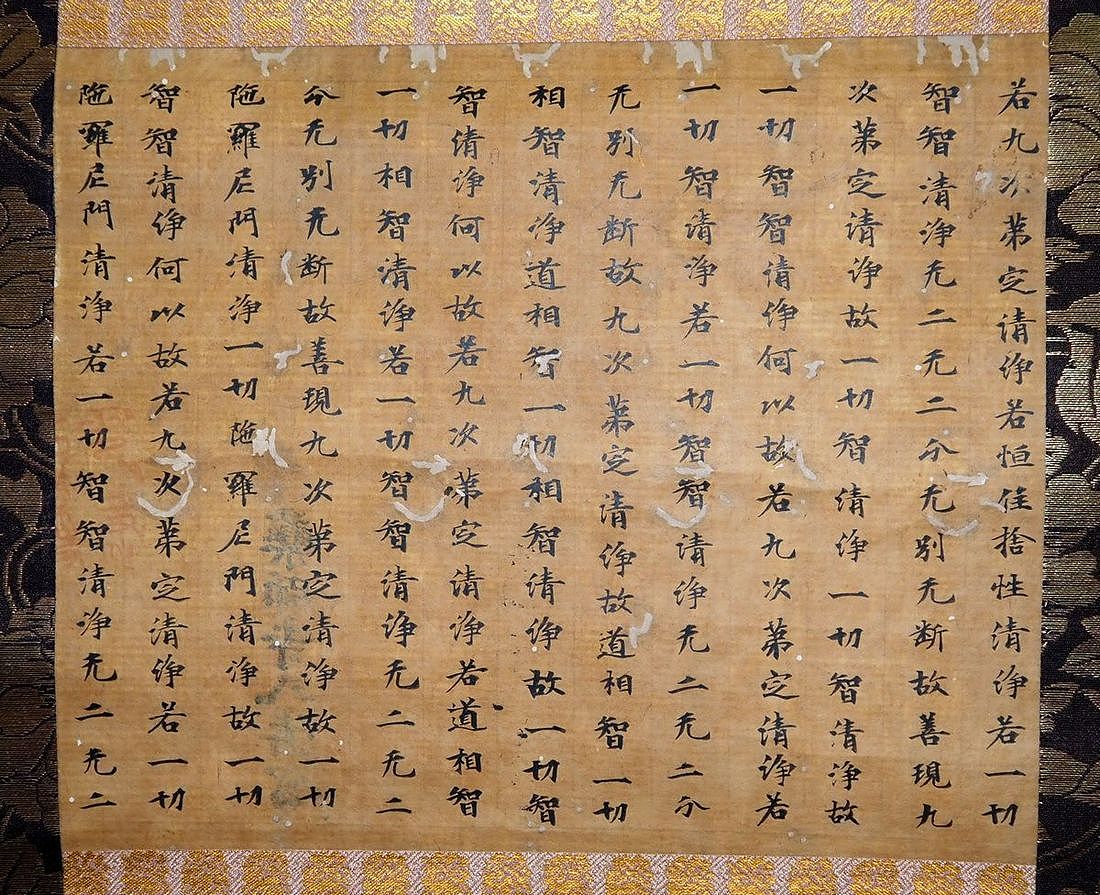 若九次第定清淨若恒住捨性清淨若一切
智智清淨无二无二分无別无斷故善現九
次第定清淨故一切智清淨一切智清淨故
一切智智清淨何以故若九次第定清淨若
一切智清淨若一切智智清淨无二无二分
无別无斷故九次第定清淨故道相智一切
相智清淨道相智一切相智清淨故一切智
智清淨何以故若九次第定清淨若道相智
一切相智清淨若一切智智清淨无二无二
分无別无斷故善現九次第定清淨故一切
陁羅尼門清淨一切陁羅尼門清淨故一切
智智清淨何以故若九次第定清淨若一切
陁羅尼門清淨若一切智智清淨无二无二